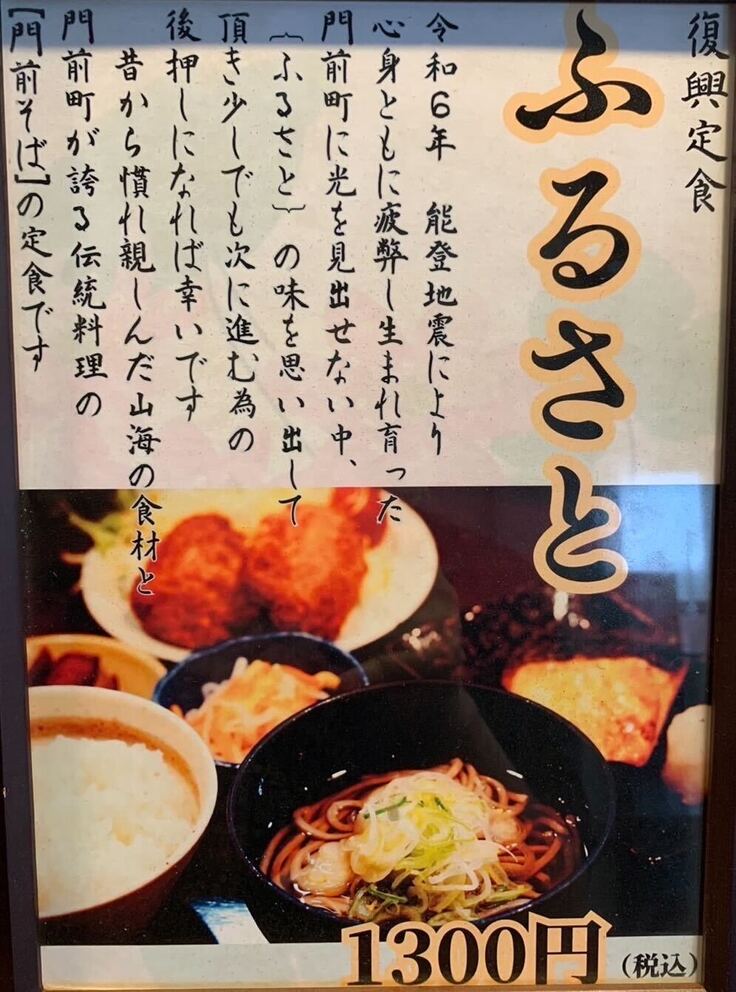 復興定食
ふるさと
令和6年 能登地震により
心身ともに疲弊し生まれ育った
門前町に光を見出せない中、
{ふるさと}の味を思い出して
頂き少しでも次に進む為の
後押しになれば幸いです
昔から慣れ親しんだ山海の食材と
門前町が誇る伝統料理の
【門前そば】の定食です
1300円(税込)